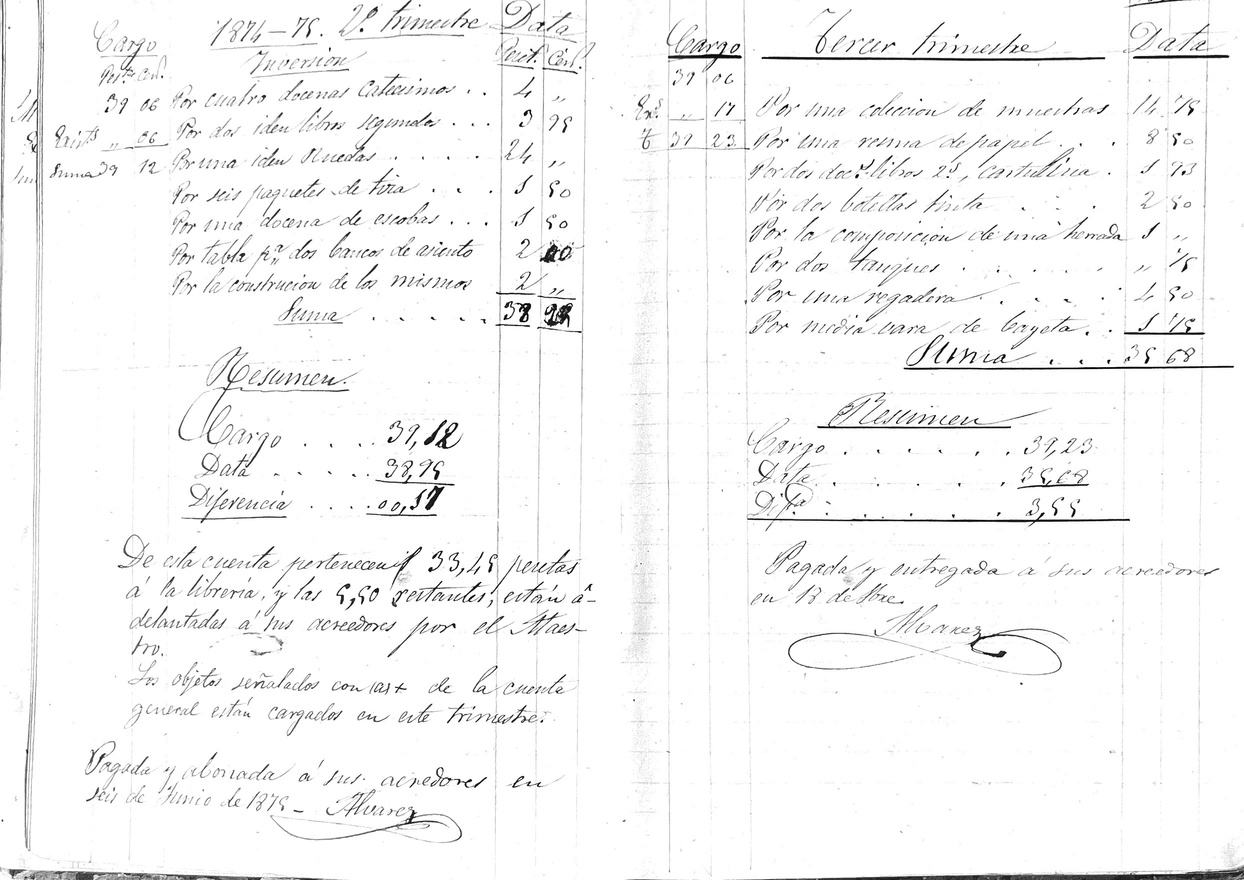 1874-75. 2º trimestre Data
Cargo Inversión Peset. Cent.
Peset. Cent.
39 06 Por cuatro docenas catecismos . . 4 „
Exist.s „ 06 Por dos iden libros segundos . . . 3 95
Suma 39 12 Por una iden Ruedas . . . . . 24 „
Por seis paquetes de tiza . . . 1 50
Por una docena de escobas . . . 1 50
Por tabla p.ª dos bancos de asiento 2 00
Por la construcion de los mismos 2 „
Suma . . . . . 38 95
Resumen.
Cargo . . . . 39,12
Data . . . . . 38,95
Diferencia . . . . 00,17
De esta cuenta pertenecen 33,45 pesetas
á la librería, y las 5,50 restantes, están a-
delantadas á sus acreedores por el Maes-
tro.
Los objetos señalados con las + de la cuenta
general están cargados en este trimestre.
Pagada y abonada á sus acredores en
seis de Junio de 1875- Alvarez
Cargo Tercer trimestre Data
39 06
Ex.s „ 17 Por una coleccion de muestras 14 75
T 39 23 Por una resma de papel . . . 8 50
Por dos doc.s libros 2.s, cartulina . 1 93
Por dos botellas tinta . . . 2 50
Por la composicion de una herrada 1 „
Por dos tanques . . . . . . „ 75
Por una regadera . . . . . 4 50
Por media vara de bayeta . . 1 75
Suma . . . 35 68
Resumen
Cargo . . . . . . 39,23
Data . . . . . . 35,68
Dif.ª . . . . . . 3,55
Pagada y entregada á sus acreedores
en 18 de
Alvarez